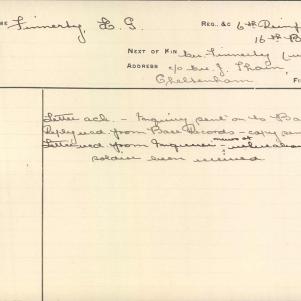 ME Finnerty, H. G. REG. &C 6th Reinf
16th B
NEXT OF KIN Mr Finnerty (
ADDRESS c/o Mr J.
Cheltenham F
Letter ack. - Inquiry sent on to Ba
Reply recd from Base Records - copy sen
Letter recd from Inquirer - news of
soldier been received